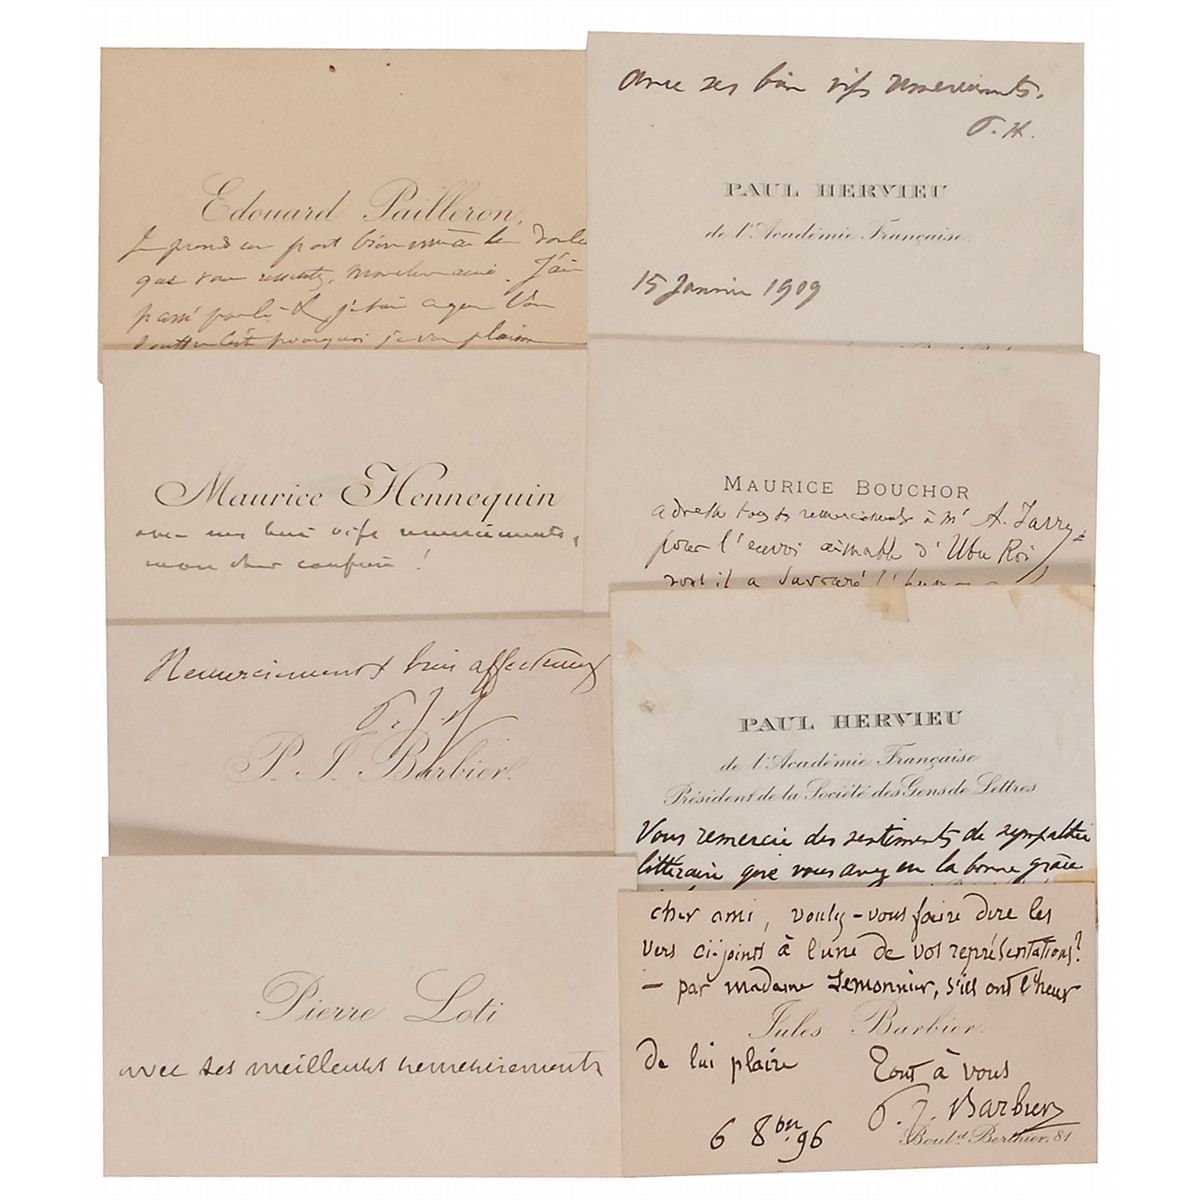 Edouard Pailleron,
Je prends une part bien
que vous . J'ai
passé par là &
c'est pourquoi je vous plains
avec ses bien vifs remerciements.
P. H.
PAUL HERVIEU
de l'Académie Française
15 Janvier 1909
Maurice Hennequin
avec mes bien vifs remerciements,
mon cher confrère !
MAURICE BOUCHOR
adresse tous ses remerciements à Mr A. Jarry
pour l'envoi aimable d'Ubu Roi
dont il a savouré
Remerciements bien affectueux
P. J. B.
P. J. Barbier.
PAUL HERVIEU
de l'Académie Française
Président de la Société des Gens de Lettres
Vous remercie des sentiments de sympathie
littéraire que vous avez eu la bonne grâce
Pierre Loti
avec ses meilleurs remerciements
cher ami, voulez-vous faire dire les
vers ci-joints à l'une de vos représentations?
— par madame Lemonnier, s'ils ont l'heur
Jules Barbier.
de lui plaire
Tout à vous
P. J. Barbier
6 8bre 96
Boul.d Berthier, 81